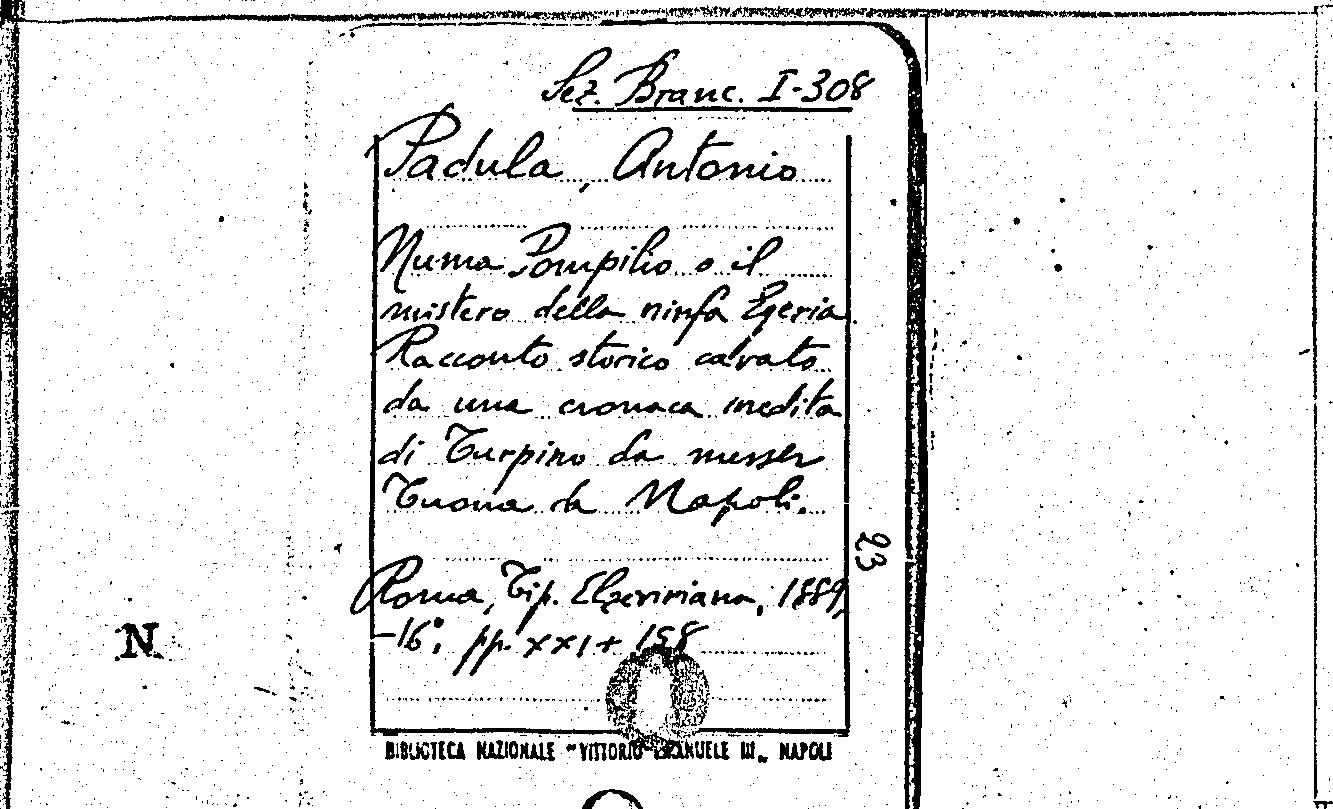 Sez. Branc. I-308
Padula, Antonio
Numa Pompilio o il
mistero della ninfa Egeria.
Racconto storico cavato
da una cronaca inedita
di Turpino da messer
Tuona da Napoli.
23
Roma, Tip. Elzeviriana, 1889,
-16°, pp. XXI + 158
N
BIBLIOTECA NAZIONALE "VITTORIO EMANUELE III„ NAPOLI